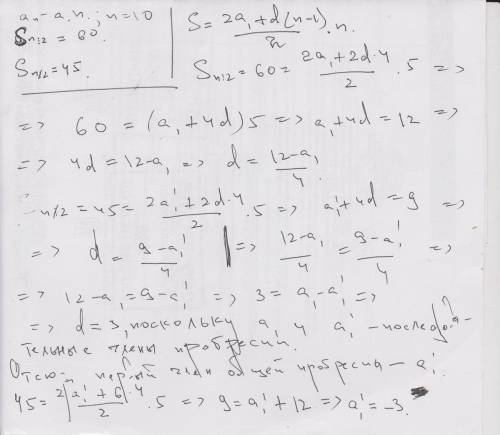 aₙ - а.п.; n=10
Sₙ⋮₂ = 60.
Sₙ⋮̸₂ = 45.
S = (2a₁+d(n-1))/2 · n.
Sₙ⋮₂ = 60 = (2a₁+2d·4)/2 · 5 =>
=> 60 = (a₁+4d)5 => a₁+4d = 12 =>
=> 4d = 12-a₁ => d = (12-a₁)/4
Sₙ⋮̸₂ = 45 = (2a₁'+2d·4)/2 · 5 => a₁'+4d = 9 =>
=> d = (9-a₁')/4 | => (12-a₁)/4 = (9-a₁')/4 =>
=> 12-a₁ = 9-a₁' => 3 = a₁-a₁' =>
=> d = 3, поскольку a₁ и a₁' - последова-
тельные члены прогресии.
Отсю- первый член общей прогресии - a₁'
45 = (2a₁' + 6·4)/2 · 5 => 9 = a₁' + 12 => a₁' = -3.